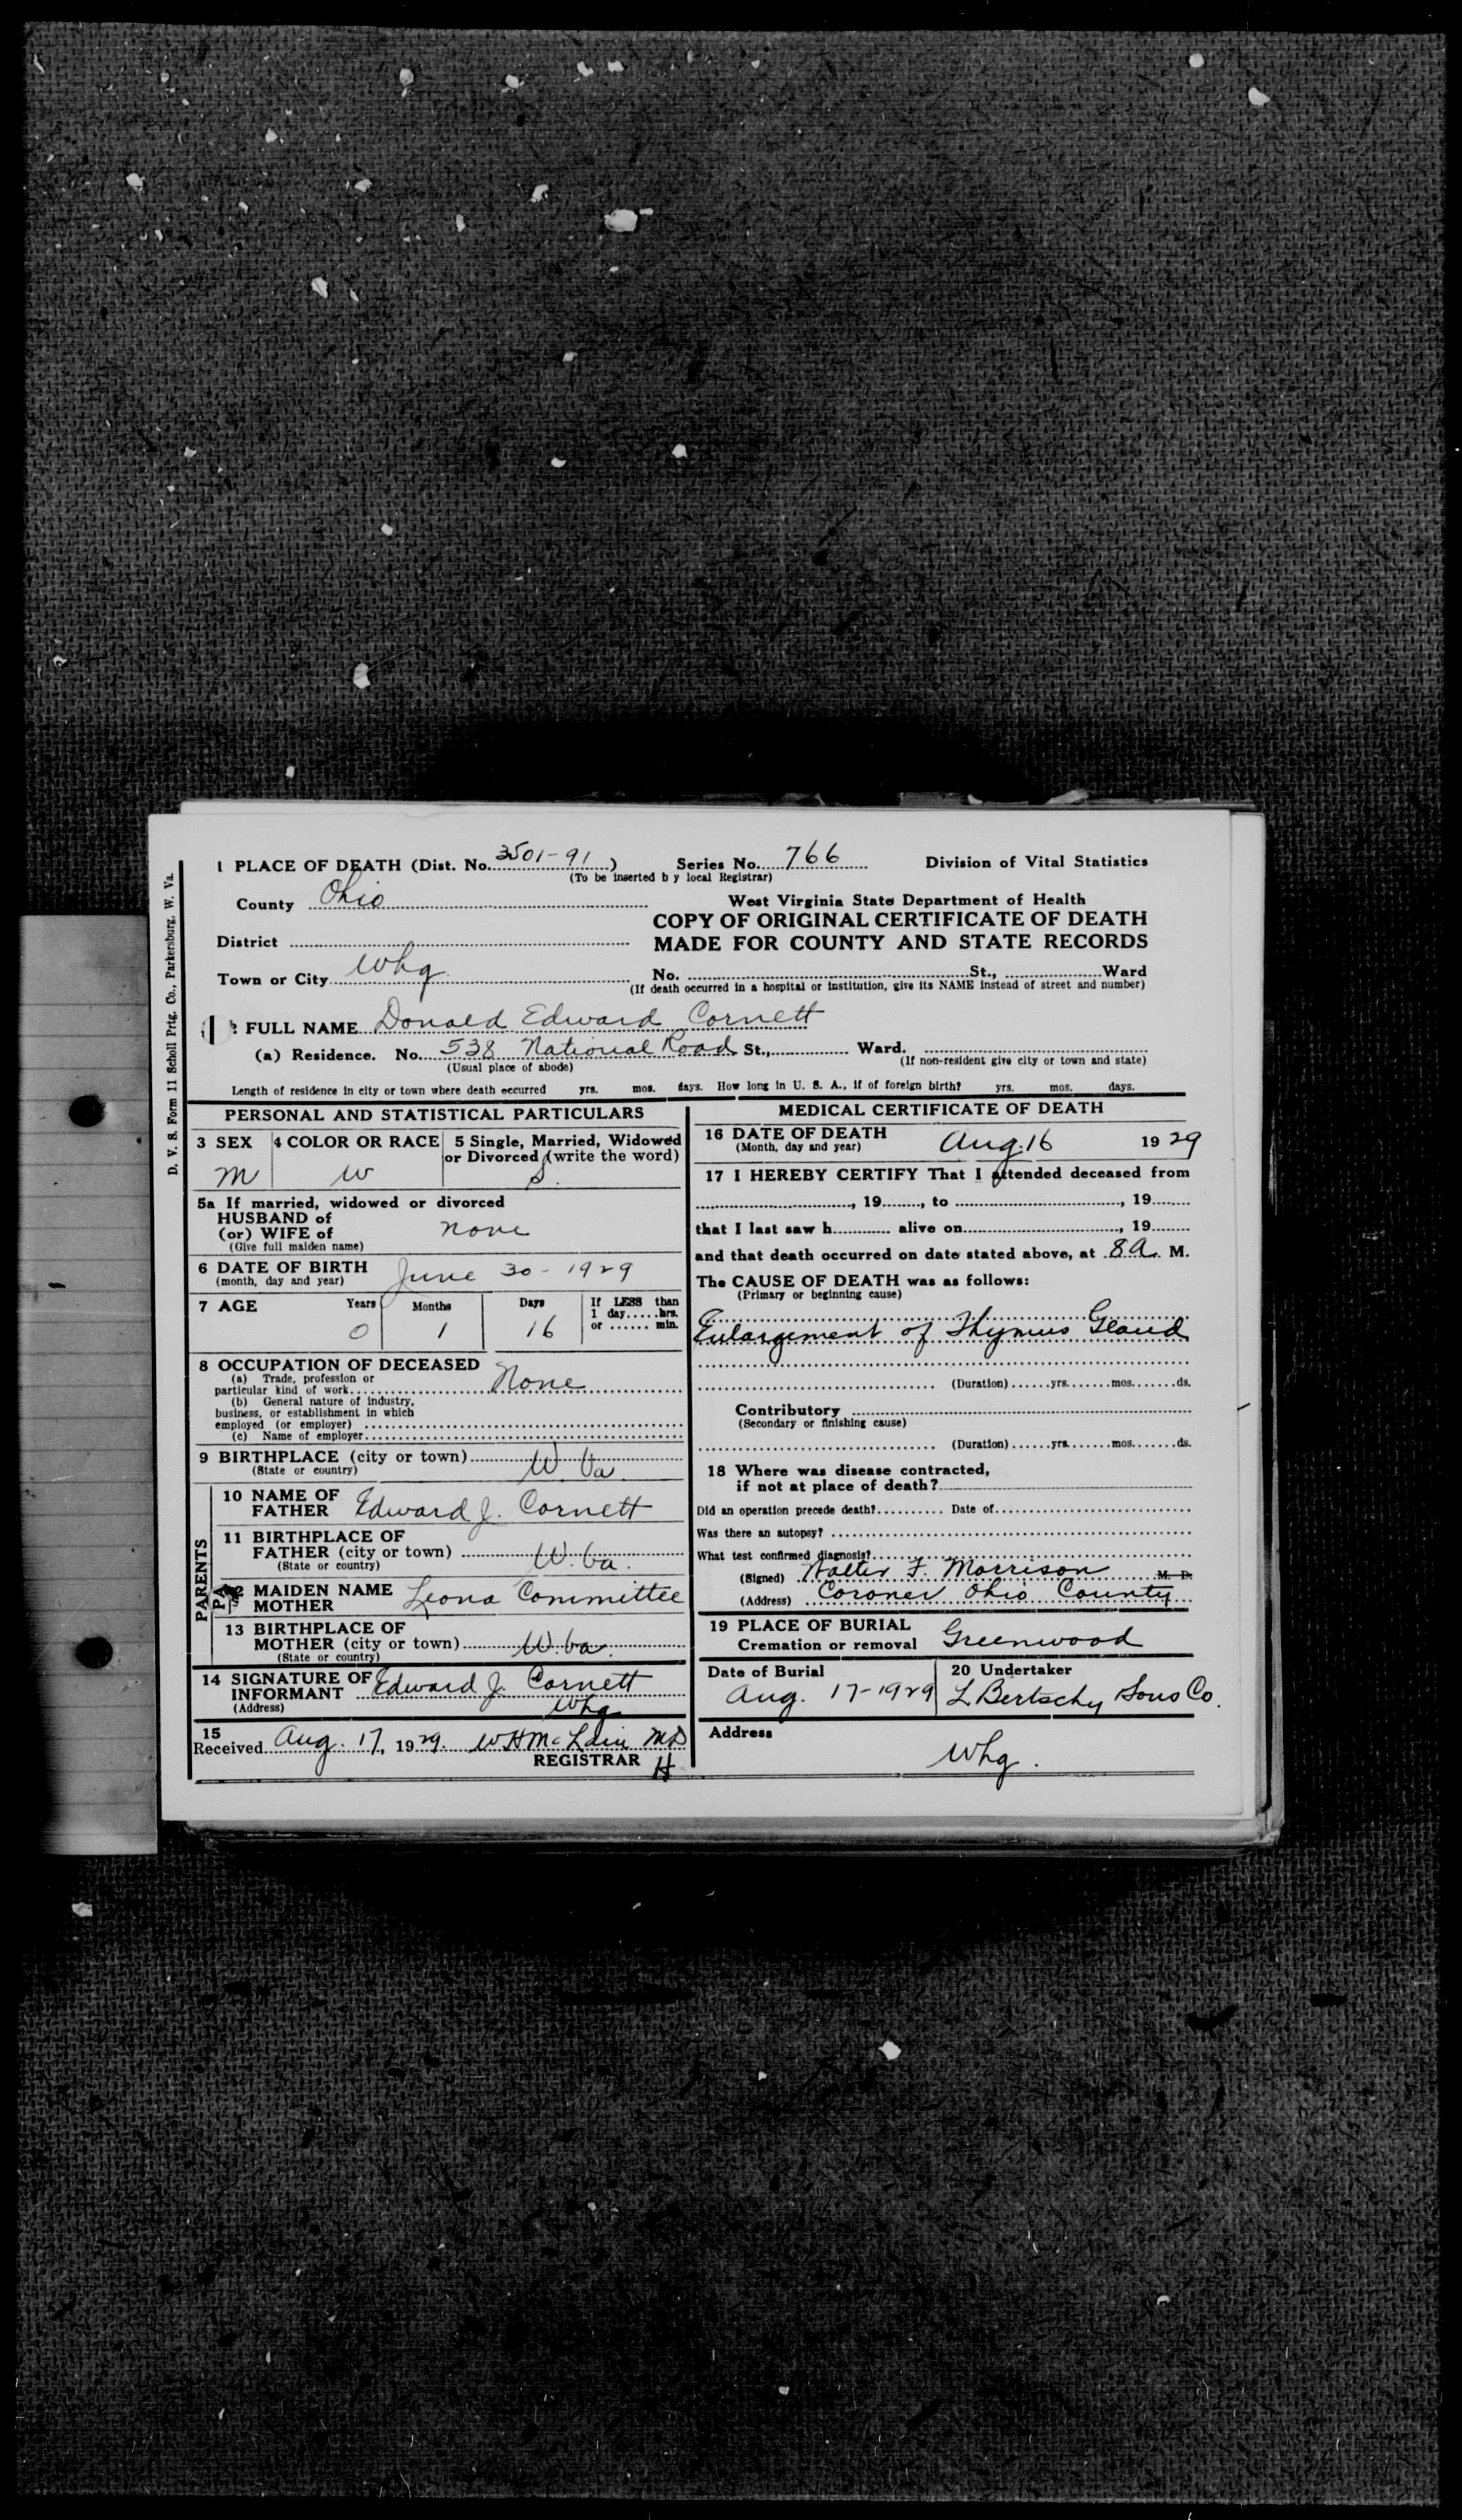 D. V. S. Form 11 Scholl Prtg. Co., Parkersburg, W. Va.
1 PLACE OF DEATH (Dist. No. 3501-91) Series No. 766 Division of Vital Statistics
(To be inserted b y local Registrar)
County Ohio West Virginia State Department of Health
COPY OF ORIGINAL CERTIFICATE OF DEATH
District MADE FOR COUNTY AND STATE RECORDS
Town or City Whg. No. St., Ward
(If death occurred in a hospital or institution, give its NAME instead of street and number)
2 FULL NAME Donald Edward Cornett
(a) Residence. No. 538 National Road St., Ward.
(Usual place of abode) (If non-resident give city or town and state)
Length of residence in city or town where death occurred yrs. mos. days. How long in U. S. A., if of foreign birth? yrs. mos. days.
PERSONAL AND STATISTICAL PARTICULARS
3 SEX 4 COLOR OR RACE 5 Single, Married, Widowed
or Divorced (write the word)
M W S.
5a If married, widowed or divorced
HUSBAND of
(or) WIFE of none
(Give full maiden name)
6 DATE OF BIRTH June 30 - 1929
(month, day and year)
7 AGE Years Months Days If LESS than
1 day.....hrs.
or ...... min.
0 1 16
8 OCCUPATION OF DECEASED
(a) Trade, profession or
particular kind of work None
(b) General nature of industry,
business, or establishment in which
employed (or employer)
(c) Name of employer
9 BIRTHPLACE (city or town) W. Va.
(State or country)
PARENTS
10 NAME OF
FATHER Edward J. Cornett
11 BIRTHPLACE OF
FATHER (city or town) W. Va.
(State or country)
MAIDEN NAME
MOTHER Leona Committee
13 BIRTHPLACE OF
MOTHER (city or town) W. Va.
(State or country)
14 SIGNATURE OF
INFORMANT Edward J. Cornett
(Address) Whg
15
Received Aug. 17, 1929. W H McLain MD
REGISTRAR H
MEDICAL CERTIFICATE OF DEATH
16 DATE OF DEATH Aug. 16 1929
(Month, day and year)
17 I HEREBY CERTIFY That I attended deceased from
, 19......, to , 19
that I last saw h alive on , 19
and that death occurred on date stated above, at 8 a. M.
The CAUSE OF DEATH was as follows:
(Primary or beginning cause)
Enlargement of Thymus Gland
(Duration) yrs. mos. ds.
Contributory
(Secondary or finishing cause)
(Duration) yrs. mos. ds.
18 Where was disease contracted,
if not at place of death?
Did an operation precede death? Date of
Was there an autopsy?
What test confirmed diagnosis?
(Signed) Walter F. Morrison M. D.
(Address) Coroner Ohio County
19 PLACE OF BURIAL
Cremation or removal Greenwood
Date of Burial 20 Undertaker
Aug. 17-1929 L Bertschy Sons Co.
Address
Whg.